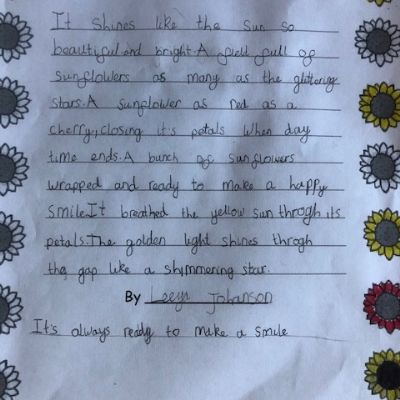 It shines like the sun so
beautiful and bright. A field full of
sunflowers as many as the glittering
stars. A sunflower as red as a
cherry, closing it's petals when day
time ends. A bunch of sunflowers
wrapped and ready to make a happy
smile. It breathed the yellow sun throgh its
petals. The golden light shines throgh
the gap like a shymmering star.
By Johanson
It's always ready to make a smile